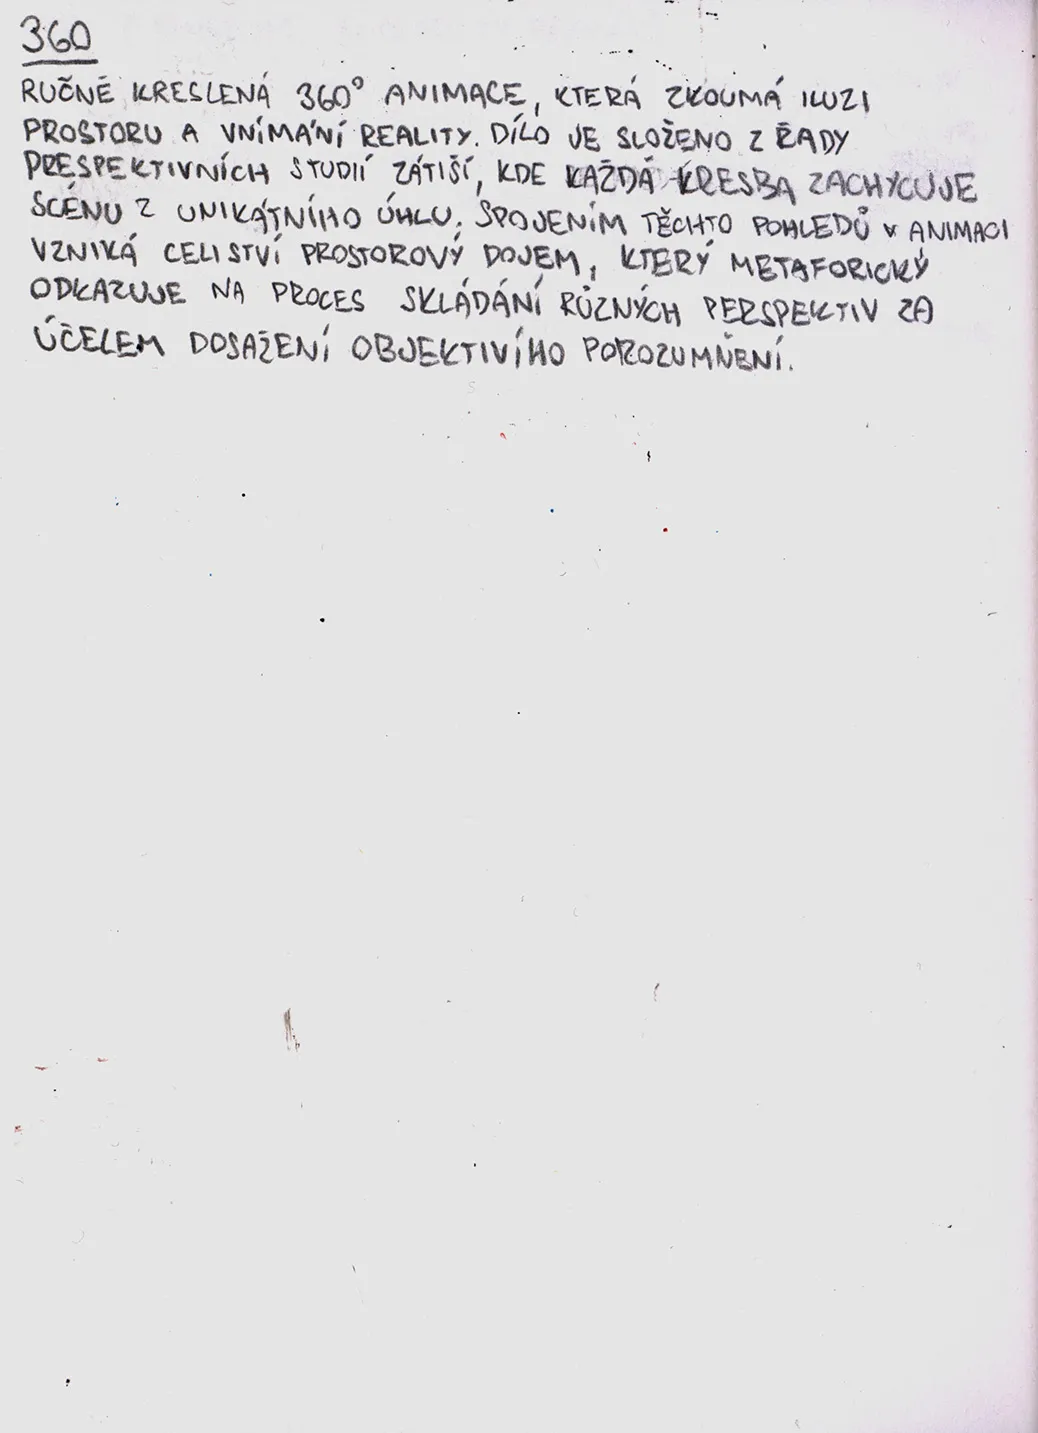 360
RUČNĚ KRESLENÁ 360° ANIMACE, KTERÁ ZKOUMÁ ILUZI
PROSTORU A VNÍMÁNÍ REALITY. DÍLO JE SLOŽENO Z ŘADY
PRESPEKTIVNÍCH STUDIÍ ZÁTIŠÍ, KDE KAŽDÁ KRESBA ZACHYCUJE
SCÉNU Z UNIKÁTNÍHO ÚHLU. SPOJENÍM TĚCHTO POHLEDŮ V ANIMACI
VZNIKÁ CELISTVÍ PROSTOROVÝ DOJEM, KTERÝ METAFORICKÝ
ODKAZUJE NA PROCES SKLÁDÁNÍ RŮZNÝCH PERSPEKTIV ZA
ÚČELEM DOSAŽENÍ OBJEKTIVÍHO POROZUMŇENÍ.